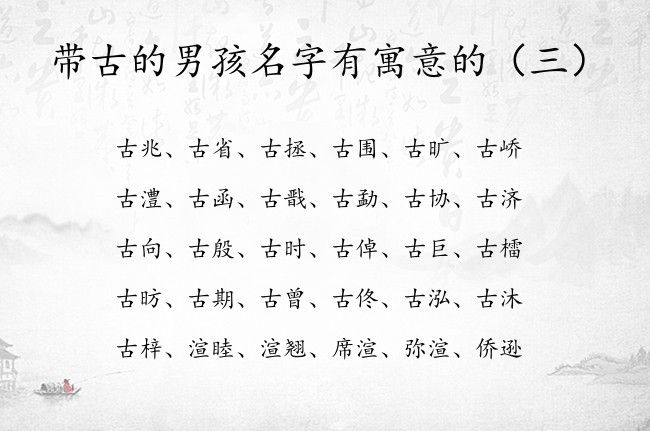 带古的男孩名字有寓意的（三）
古兆、古省、古拯、古围、古旷、古峤
古澧、古函、古戬、古勐、古协、古济
古向、古殷、古时、古倬、古巨、古檑
古昉、古期、古曾、古佟、古泓、古沐
古梓、渲睦、渲翘、席渲、弥渲、侨逊